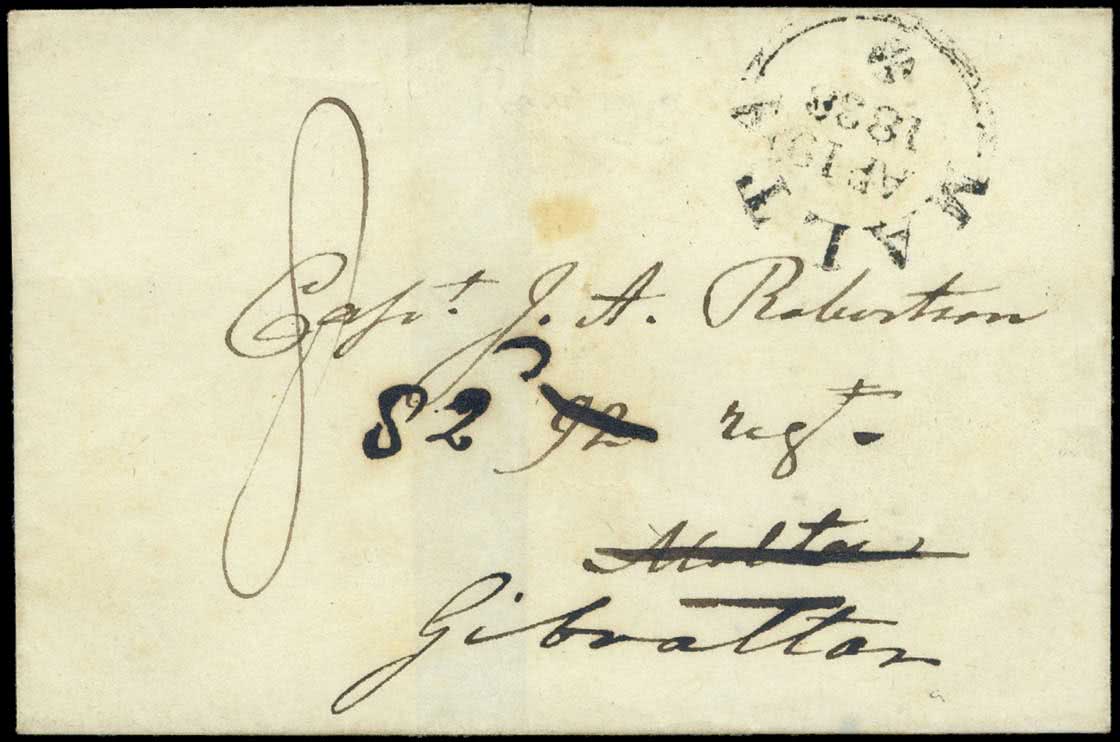 MALTA
AP 19
1838
8
Capt. J. A. Robertson
82 92 regt.
Malta
Gibraltar